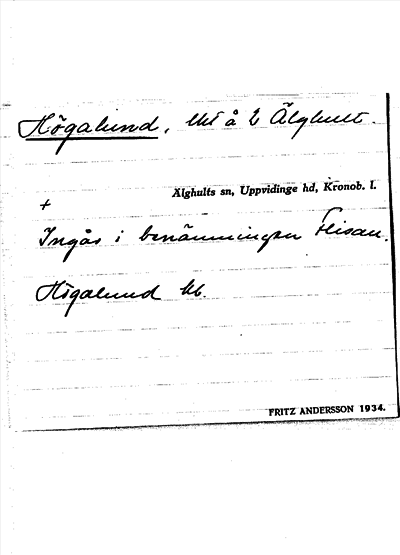 Högalund, lht å 2 Älghult.
Älghults sn, Uppvidinge hd, Kronob. l.
+
Ingås i benämningen Flisan.
Högalund kb.
FRITZ ANDERSSON 1934.